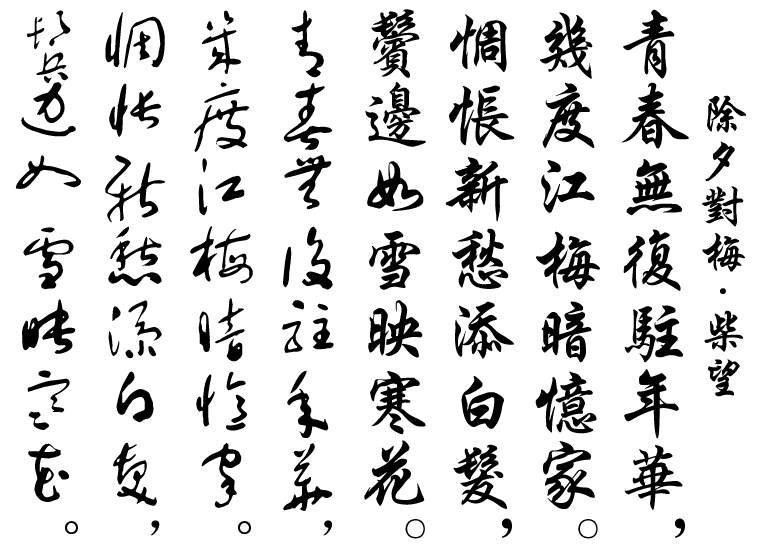 除夕對梅·柴望
青春無復駐年華，
幾度江梅暗憶家。
惆悵新愁添白髮，
鬢邊如雪映寒花。
青春無復駐年華，
幾度江梅暗憶家。
惆悵新愁添白髮，
鬢邊如雪映寒花。